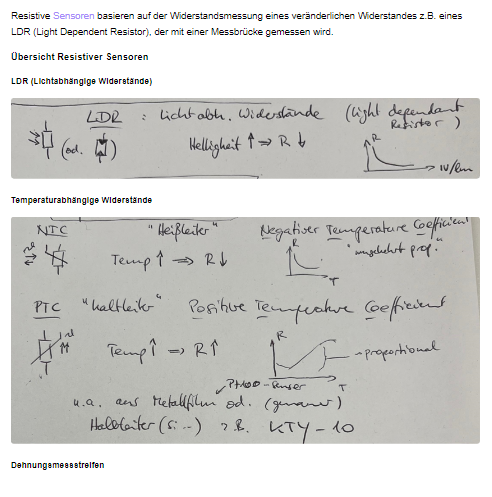 Resistive Sensoren basieren auf der Widerstandsmessung eines veränderlichen Widerstandes z.B. eines
LDR (Light Dependent Resistor), der mit einer Messbrücke gemessen wird.
Übersicht Resistiver Sensoren
LDR (Lichtabhängige Widerstände)
LDR : Lichtabh. Widerstände (Light dependant
Resistor)
(od. )
Helligkeit ↑ ⇒ R ↓
R
Temperaturabhängige Widerstände
NTC "Heißleiter" Negativer Temperature Coefficient
Temp ↑ ⇒ R ↓
R
T
"umgekehrt prop."
PTC "Kaltleiter" Positive Temperature Coefficient
Temp ↑ ⇒ R ↑
R
T
proportional
Pt100-Sensor
u.a. aus Metallfilm od. (genauer)
Halbleiter (Si...) z.B. KTY-10
Dehnungsmessstreifen